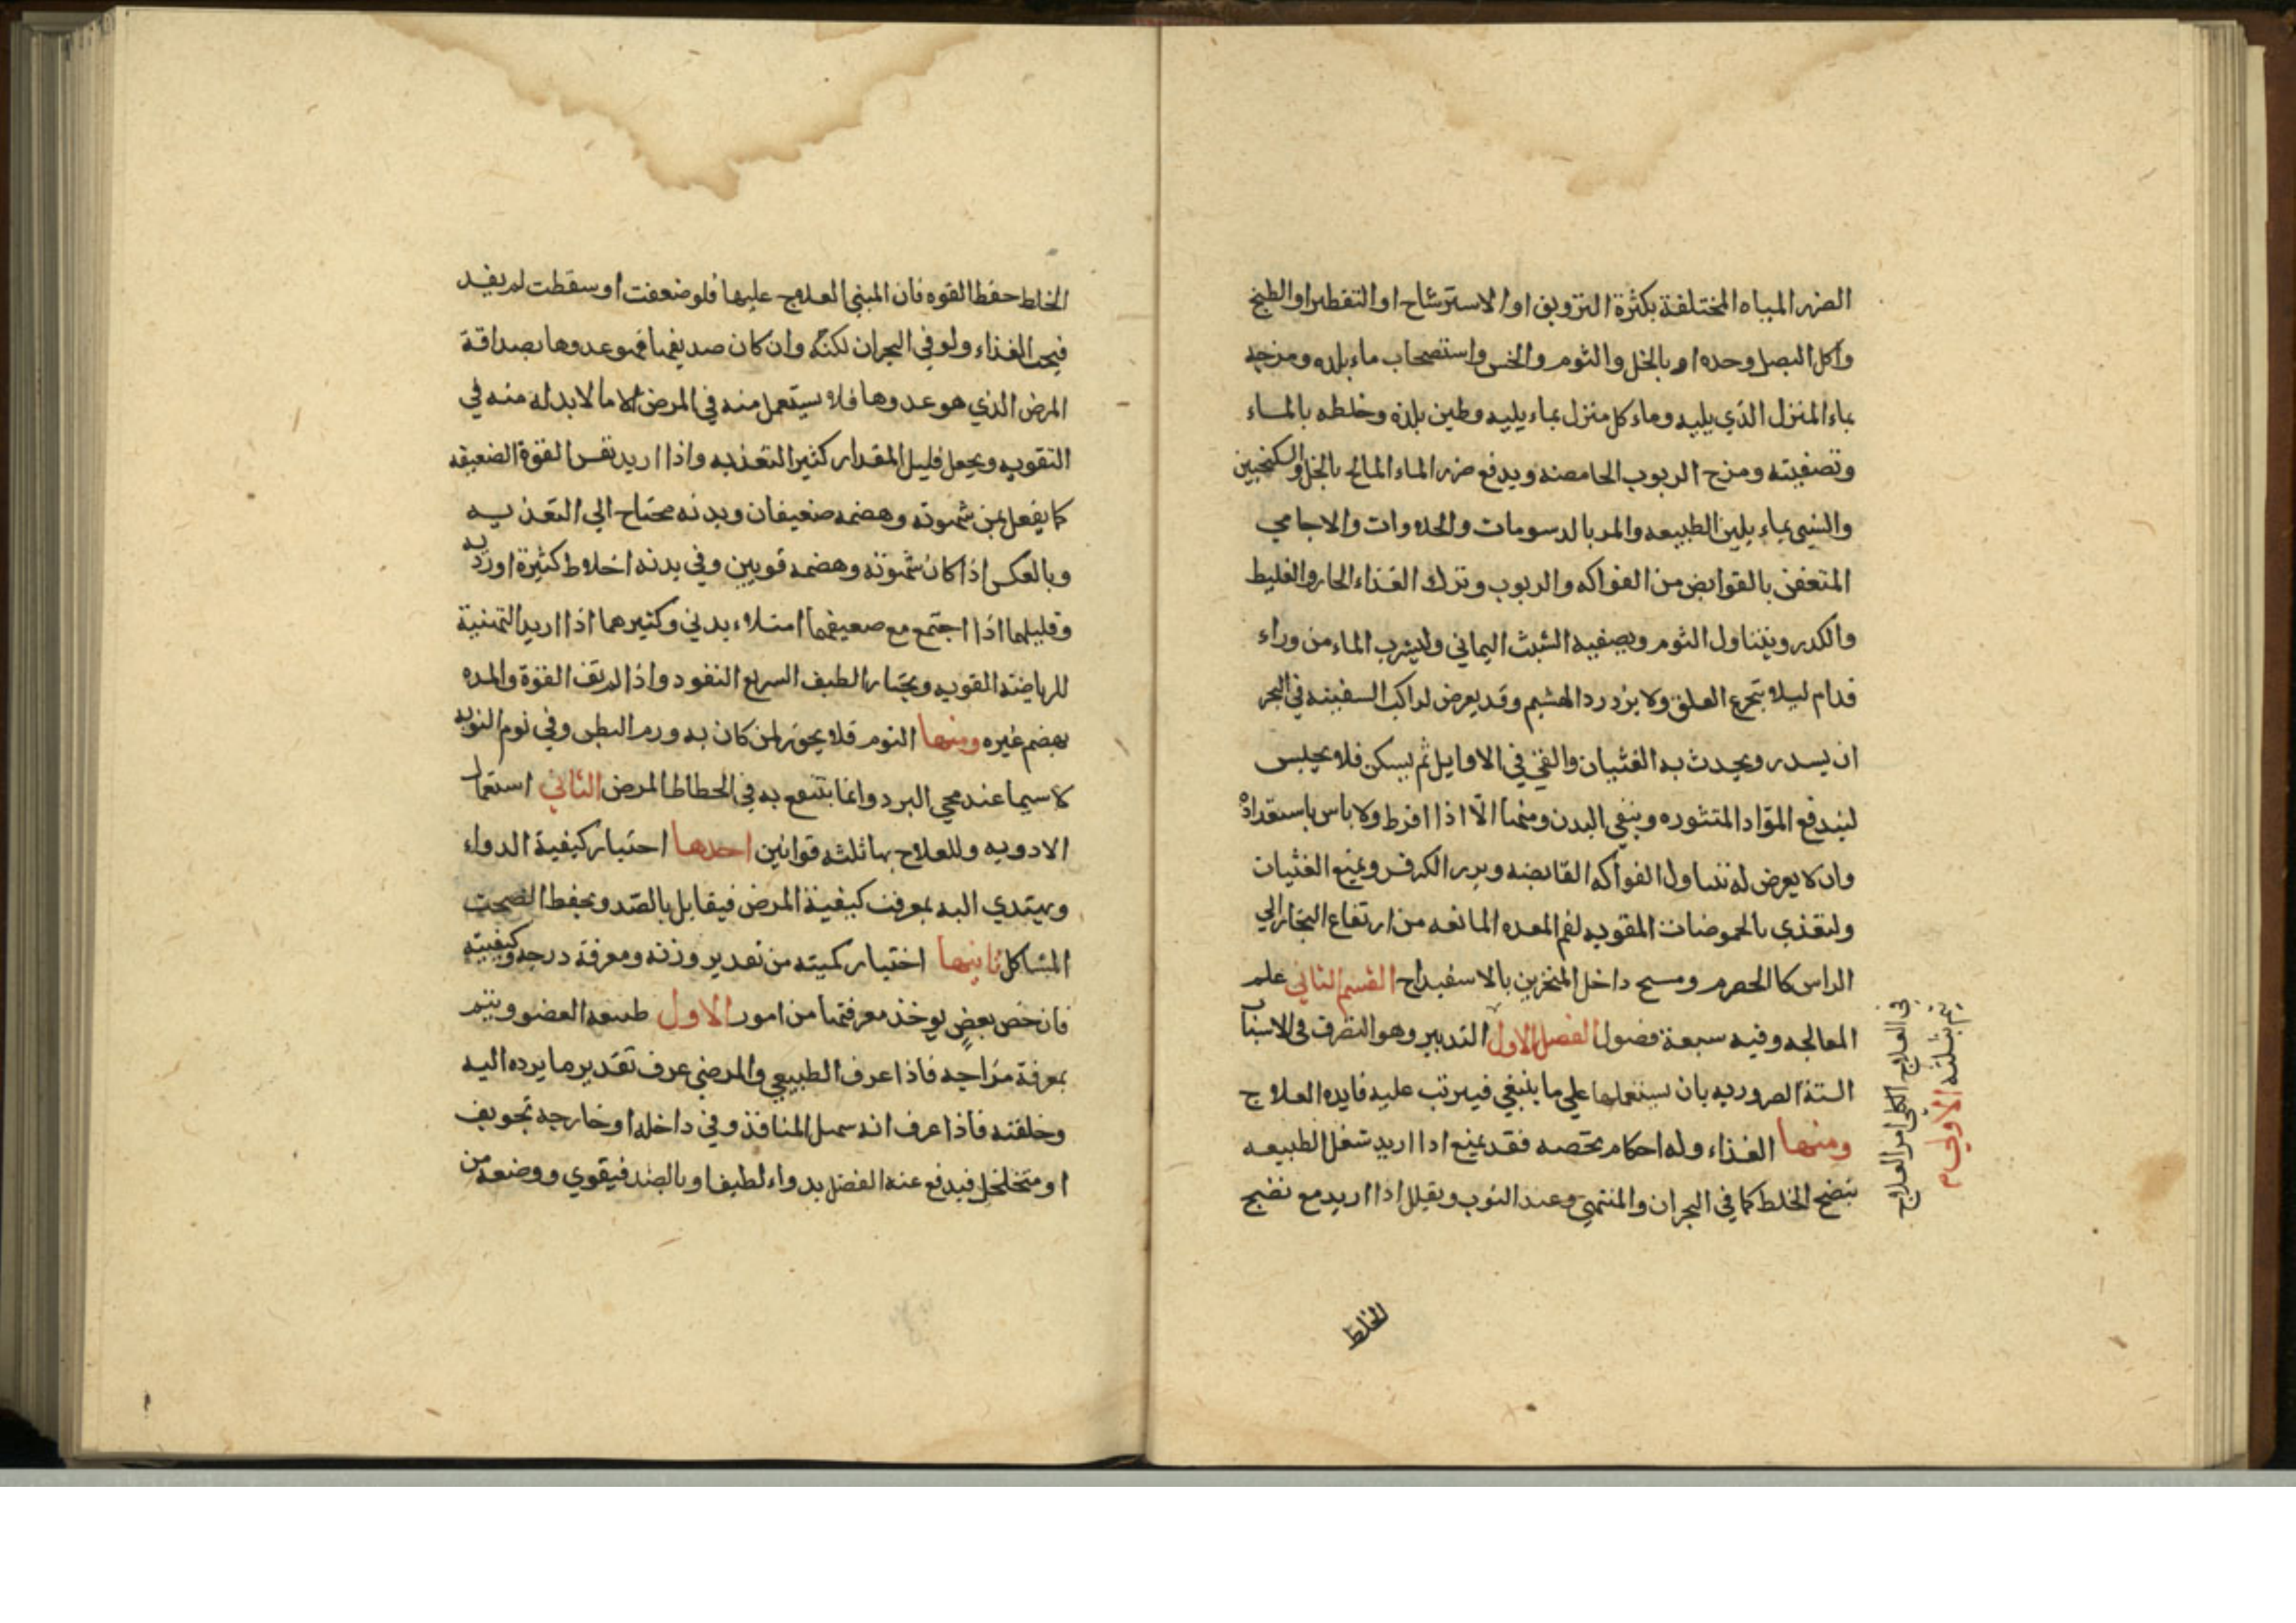 الضرر المياه المختلفة بكثرة الترويق او الاسترشاح او التقطير او الطبخ
واكل البصل وحده او بالخل والثوم والخس واستصحاب ماء بلده ومزجه
بماء المنزل الذي يليه وماء كل منزل بماء يليه وطين بلده وخلطه بالماء
وتصفيته ومزج الربوب الحامضه ويدفع ضرر الماء المالح بالخل والسكنجبين
بماء يلين الطبيعه والمر بالدسومات والحلاوات والاجامي
المتعفن بالقوابض من الفواكه والربوب وترك الغذاء الحار والغليظ
والكدر ويتناول الثوم ويصفيه الشبث اليماني وليشرب الماء من وراء
فدام ليلا يتجرع العلق ولا يزدرد الهشيم وقد يعرض لراكب السفينه في البحر
ان يسدر ويحدث به الغثيان والقي في الاوايل ثم يسكن فلا يحبس
ليندفع المواد المتثوره وينقي البدن ومنهما الا اذا افرط ولا باس باستعداده
وان لا يعرض له تناول الفواكه القابضه وبزر الكرفس ويمنع الغثيان
ولتغذي بالحموضات المقويه لفم المعده المانعه من ارتفاع البخار الي
الراس كالحصرم ومسح داخل المنخرين بالاسفيداج القسم الثاني علم
المعالجه وفيه سبعة فصول الفصل الاول التدبير وهو التصرف في الاسباب
الستة الضروريه بان يستعملها علي ما ينبغي فيترتب عليه فايده العلاج
ومنها الغذاء وله احكام تخصه فقد يمنع اذا اريد شغل الطبيعه
بنضج الخلط كما في البحران والمنتهي وعند النوب ويقلل اذا اريد مع نضج
في العلاج الكلي امر العلاج
يتم بثلثه الاول م
الخلط
الخلط حفظ القوه فان المبني العلاج عليها فلو ضعفت او سقطت لم يفد
فيجب الغذاء ولو في البحران لكنه وان كان صديقها فهو عدوها بصداقة
المرض الذي هو عدوها فلا يستعمل منه في المرض الا ما لا بد له منه في
التقويه ويجعل قليل المقدار كثير التغذيه واذا اريد القوة الضعيفه
كما يفعل بمن شهوته وهضمه ضعيفان وبدنه محتاج الي التغذيه
وبالعكس اذا كان شهوته وهضمه قويين وفي بدنه اخلاط كثيرة او رديه
وقليلهما اذا اجتمع مع ضعيفهما امتلاء بدني وكثيرهما اذا اريد التهنية
للرياضة القويه ويختار الطيف السريع النفود واذا لم تف القوة والمده
بهضم غيره ومنها النوم فلا يجوز لمن كان به ورم البطن وفي نوم النوبه
لا سيما عند مجي البرد وانما ينتفع به في انحطاط المرض الثاني استعمال
الادويه وللعلاج بها ثلثه قوانين احدها اختيار كيفية الدواء
ويهتدي اليه بمعرفت كيفية المرض فيقابل بالضد ويحفظ الصحت
المشاكل ثانيها اختيار كميته من تقدير وزنه ومعرفة درجه وكيفيته
فان خص بعض يوخذ معرفتها من امور الاول طبيعه العضو ويتم
بمعرفة مزاجه فاذا عرف الطبيعي والمرضي عرف تقدير ما يرده اليه
وخلقته فاذا عرف انه سهل المنافذ وفي داخله او خارجه تجويف
او متخلخل فيدفع عنه الفضل بدواء لطيف او بالضد فيقوي ووضعه من